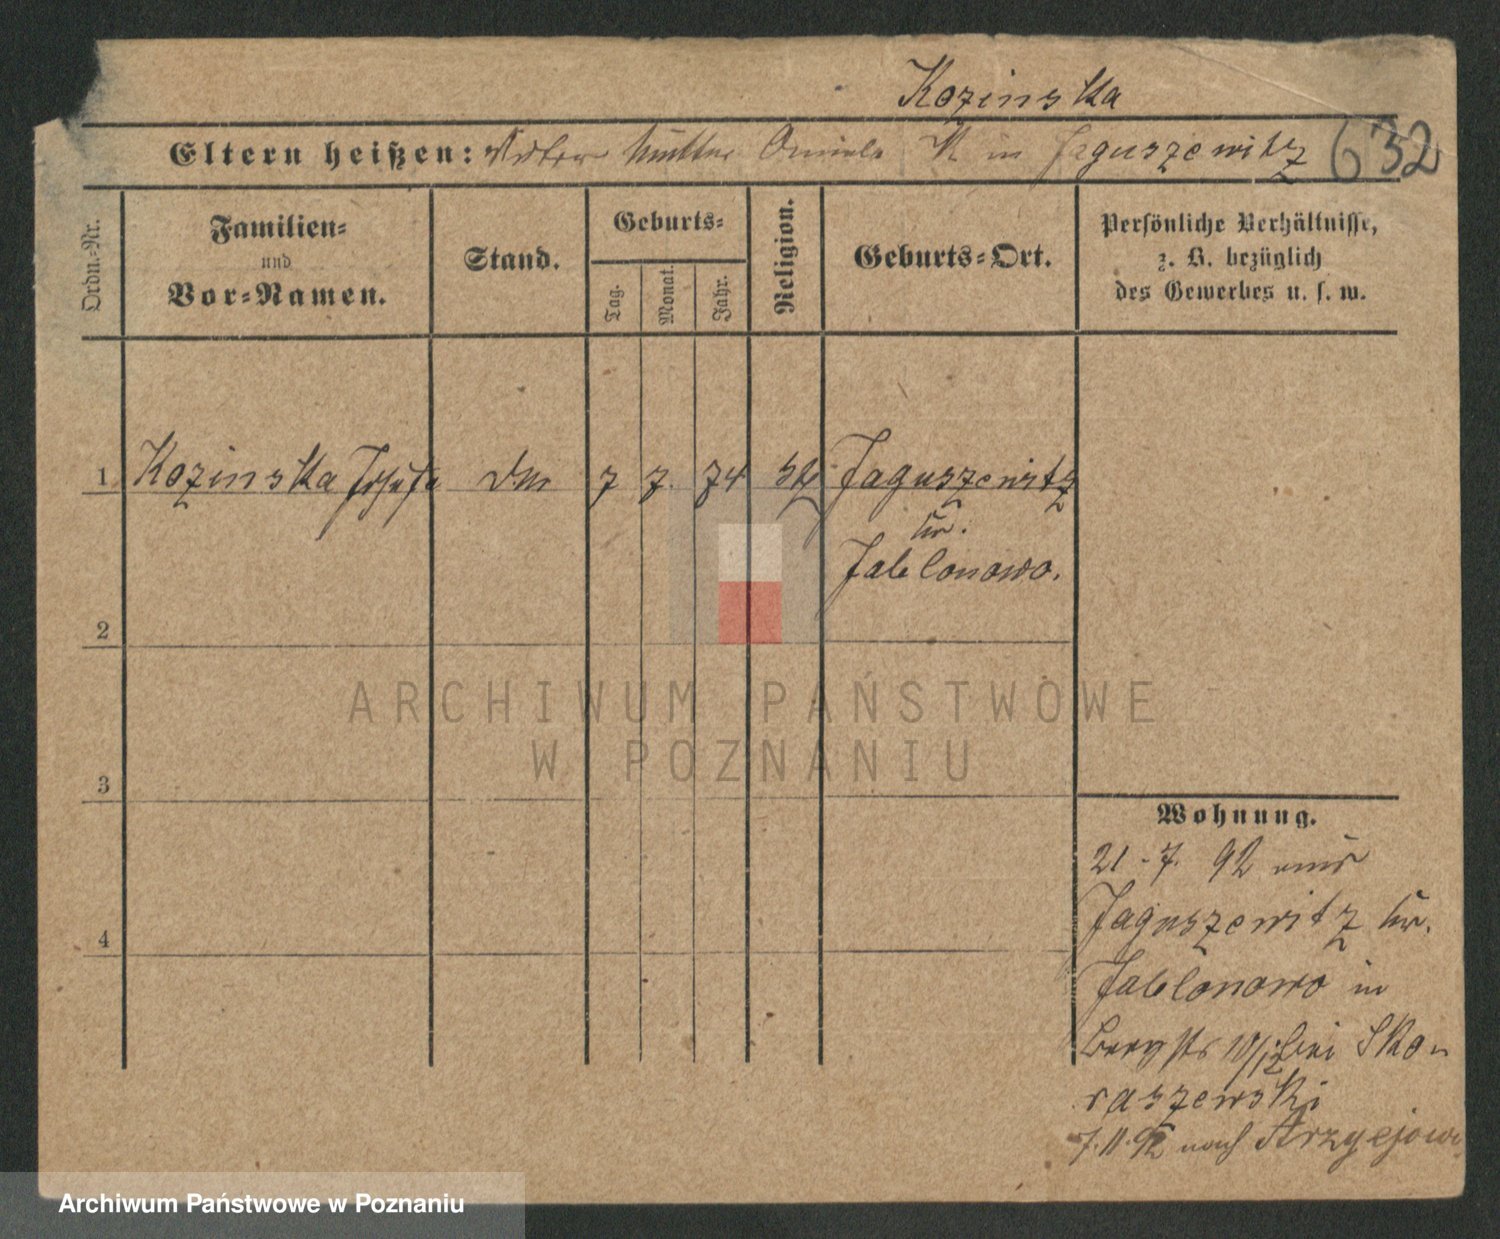 Kozinska
Eltern heißen: Mutter K in Jaguszewitz 632
Ordn.-Nr.
Familien-
und
Vor-Namen.
Stand.
Geburts-
Tag.
Monat.
Jahr.
Religion.
Geburts-Ort.
Persönliche Verhältnisse,
z. B. bezüglich
des Gewerbes u. s. w.
1 Kozinska Josefa 7 7. 74 Jaguszewitz
Kr.
Jablonowo.
2
3
4
ARCHIWUM PAŃSTWOWE
W POZNANIU
Wohnung.
21.7. 92 aus
Jaguszewitz Kr.
Jablonowo in
Bergstr bei Sko-
raszewski
7.11.92 nach
Archiwum Państwowe w Poznaniu